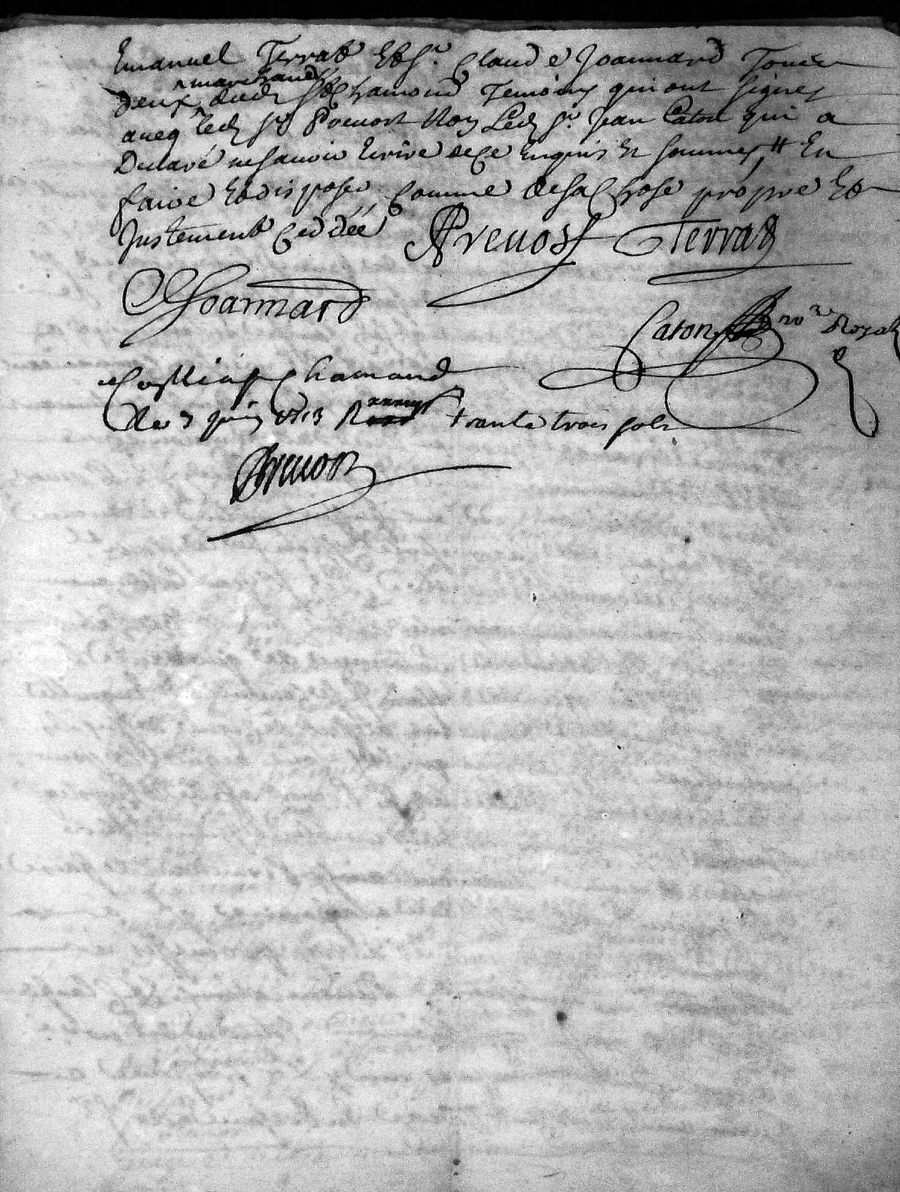 Emanuel Terrad Et Sr. Claude Joannard Tous
marchands
deux dud. St Chamond Temoins qui ont signes
avecq led sr Prevost Non Led Sr. Jean Caton qui a
Declaré ne sauoir Ecrire de ce Enquis Et sommes, # En
faire Et disposer Comme de sa Chose propre Et
Justement Ceddée APreuost Terrad
CJoannard
Caton nore Royal
Con St Chamond
le 7 juin 1713 R trante trois sols
APreuost